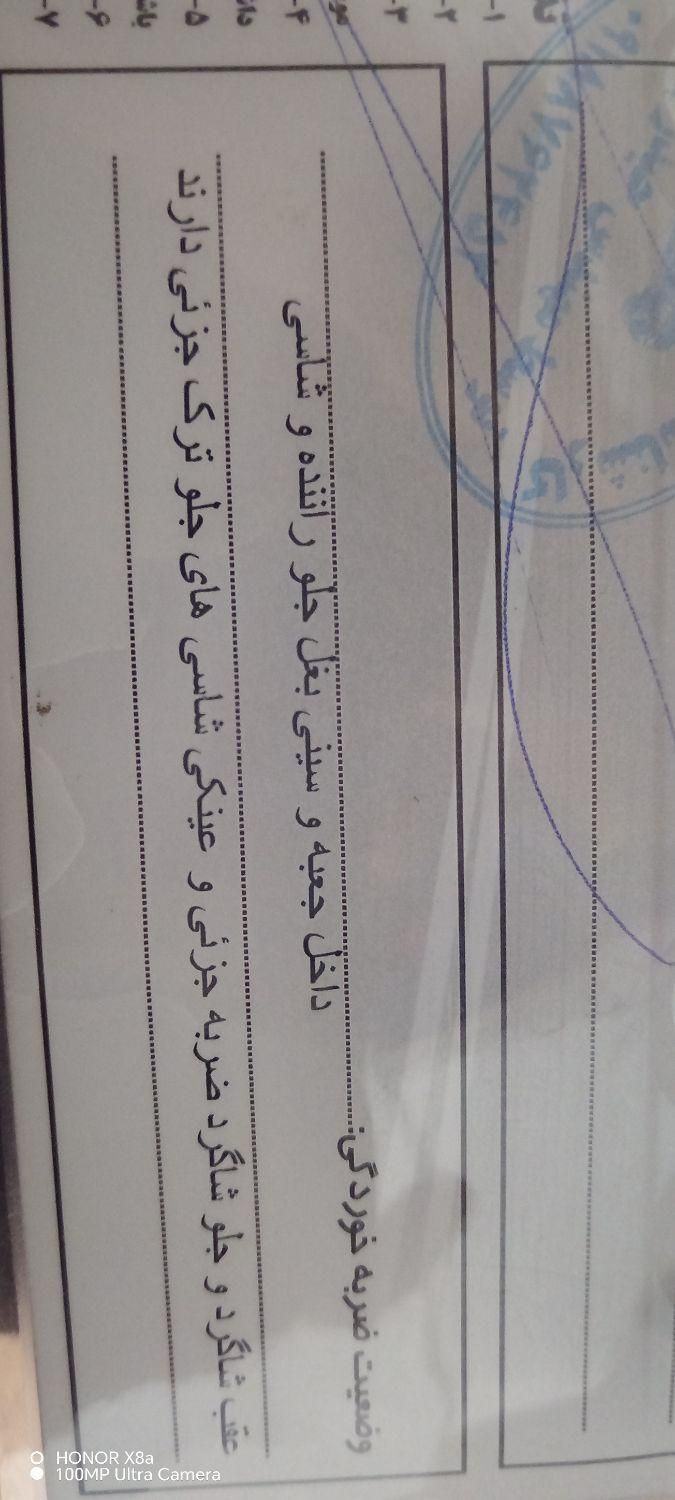 وضعیت ضربه خوردگی:
داخل جعبه و سینی بغل جلو راننده و شاسی
عقب شاگرد و جلو شاگرد ضربه جزئی و عینکی شاسی های جلو ترک جزئی دارند
۱-
۲-
۳-
۴-
۵-
۶-
۷-
HONOR X8a
100MP Ultra Camera